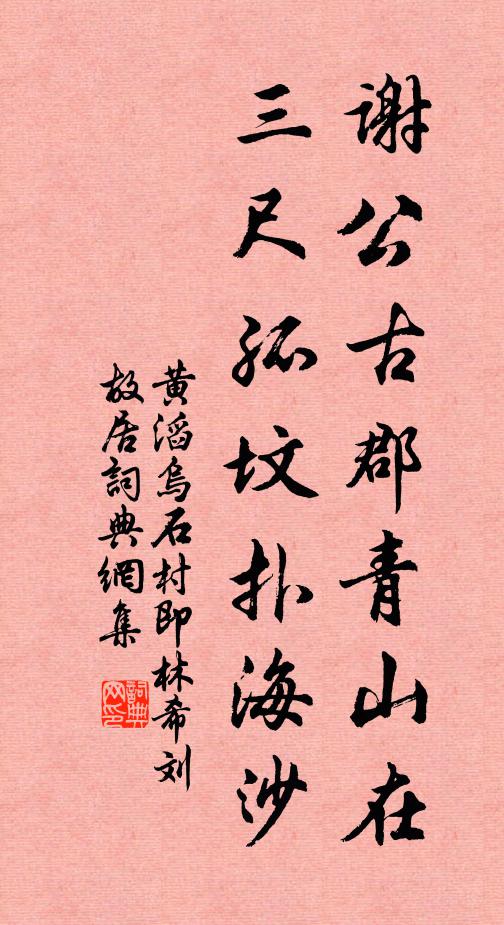 谢公古郡青山在
三尺孤坟扑海沙
黄滔乌石村即林希刘
故居詞典網集
詞典网印